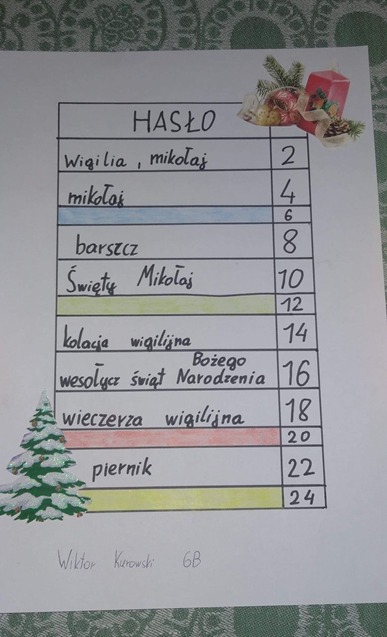 HASŁO
Wigilia, mikołaj 2
mikołaj 4
6
barszcz 8
Święty Mikołaj 10
12
kolacja wigilijna 14
Bożego
wesołycz świąt Narodzenia 16
wieczerza wigilijna 18
20
piernik 22
24
Wiktor Kurowski 6B